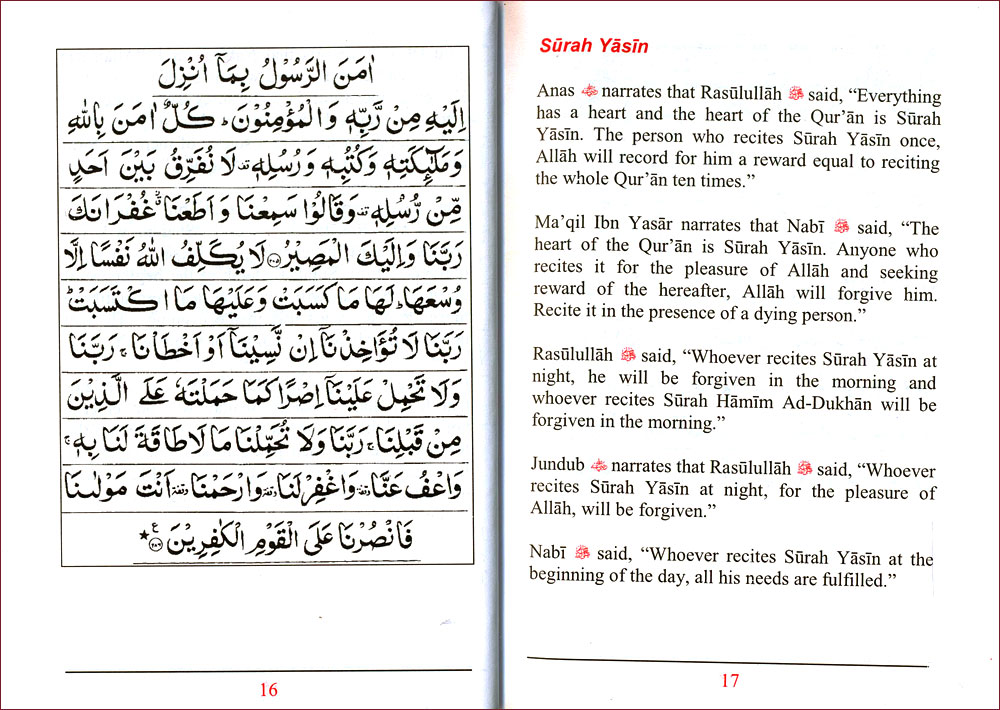 اٰمَنَ الرَّسُوْلُ بِمَآ اُنْزِلَ
اِلَيْهِ مِنْ رَّبِّهٖ وَالْمُؤْمِنُوْنَ ؕ كُلٌّ اٰمَنَ بِاللّٰهِ
وَمَلٰٓئِكَتِهٖ وَكُتُبِهٖ وَرُسُلِهٖ قف لَا نُفَرِّقُ بَيْنَ اَحَدٍ
مِّنْ رُّسُلِهٖ قف وَقَالُوْا سَمِعْنَا وَاَطَعْنَا غُفْرَانَكَ
رَبَّنَا وَاِلَيْكَ الْمَصِيْرُ ﴿٢٨٥﴾ لَا يُكَلِّفُ اللّٰهُ نَفْسًا اِلَّا
وُسْعَهَا ؕ لَهَا مَا كَسَبَتْ وَعَلَيْهَا مَا اكْتَسَبَتْ ؕ
رَبَّنَا لَا تُؤَاخِذْنَآ اِنْ نَّسِيْنَآ اَوْ اَخْطَاْنَا ۚ رَبَّنَا
وَلَا تَحْمِلْ عَلَيْنَآ اِصْرًا كَمَا حَمَلْتَهٗ عَلَى الَّذِيْنَ
مِنْ قَبْلِنَا ۚ رَبَّنَا وَلَا تُحَمِّلْنَا مَا لَا طَاقَةَ لَنَا بِهٖ ۚ
وَاعْفُ عَنَّا وقفة وَاغْفِرْ لَنَا وقفة وَارْحَمْنَا وقفة اَنْتَ مَوْلٰىنَا
فَانْصُرْنَا عَلَى الْقَوْمِ الْكٰفِرِيْنَ ﴿٢٨٦﴾ ع ★
16
Sūrah Yāsīn
Anas narrates that Rasūlullāh ﷺ said, “Everything
has a heart and the heart of the Qur’ān is Sūrah
Yāsīn. The person who recites Sūrah Yāsīn once,
Allāh will record for him a reward equal to reciting
the whole Qur’ān ten times.”
Ma’qil Ibn Yasār narrates that Nabī ﷺ said, “The
heart of the Qur’ān is Sūrah Yāsīn. Anyone who
recites it for the pleasure of Allāh and seeking
reward of the hereafter, Allāh will forgive him.
Recite it in the presence of a dying person.”
Rasūlullāh ﷺ said, “Whoever recites Sūrah Yāsīn at
night, he will be forgiven in the morning and
whoever recites Sūrah Hāmīm Ad-Dukhān will be
forgiven in the morning.”
Jundub narrates that Rasūlullāh ﷺ said, “Whoever
recites Sūrah Yāsīn at night, for the pleasure of
Allāh, will be forgiven.”
Nabī ﷺ said, “Whoever recites Sūrah Yāsīn at the
beginning of the day, all his needs are fulfilled.”
17